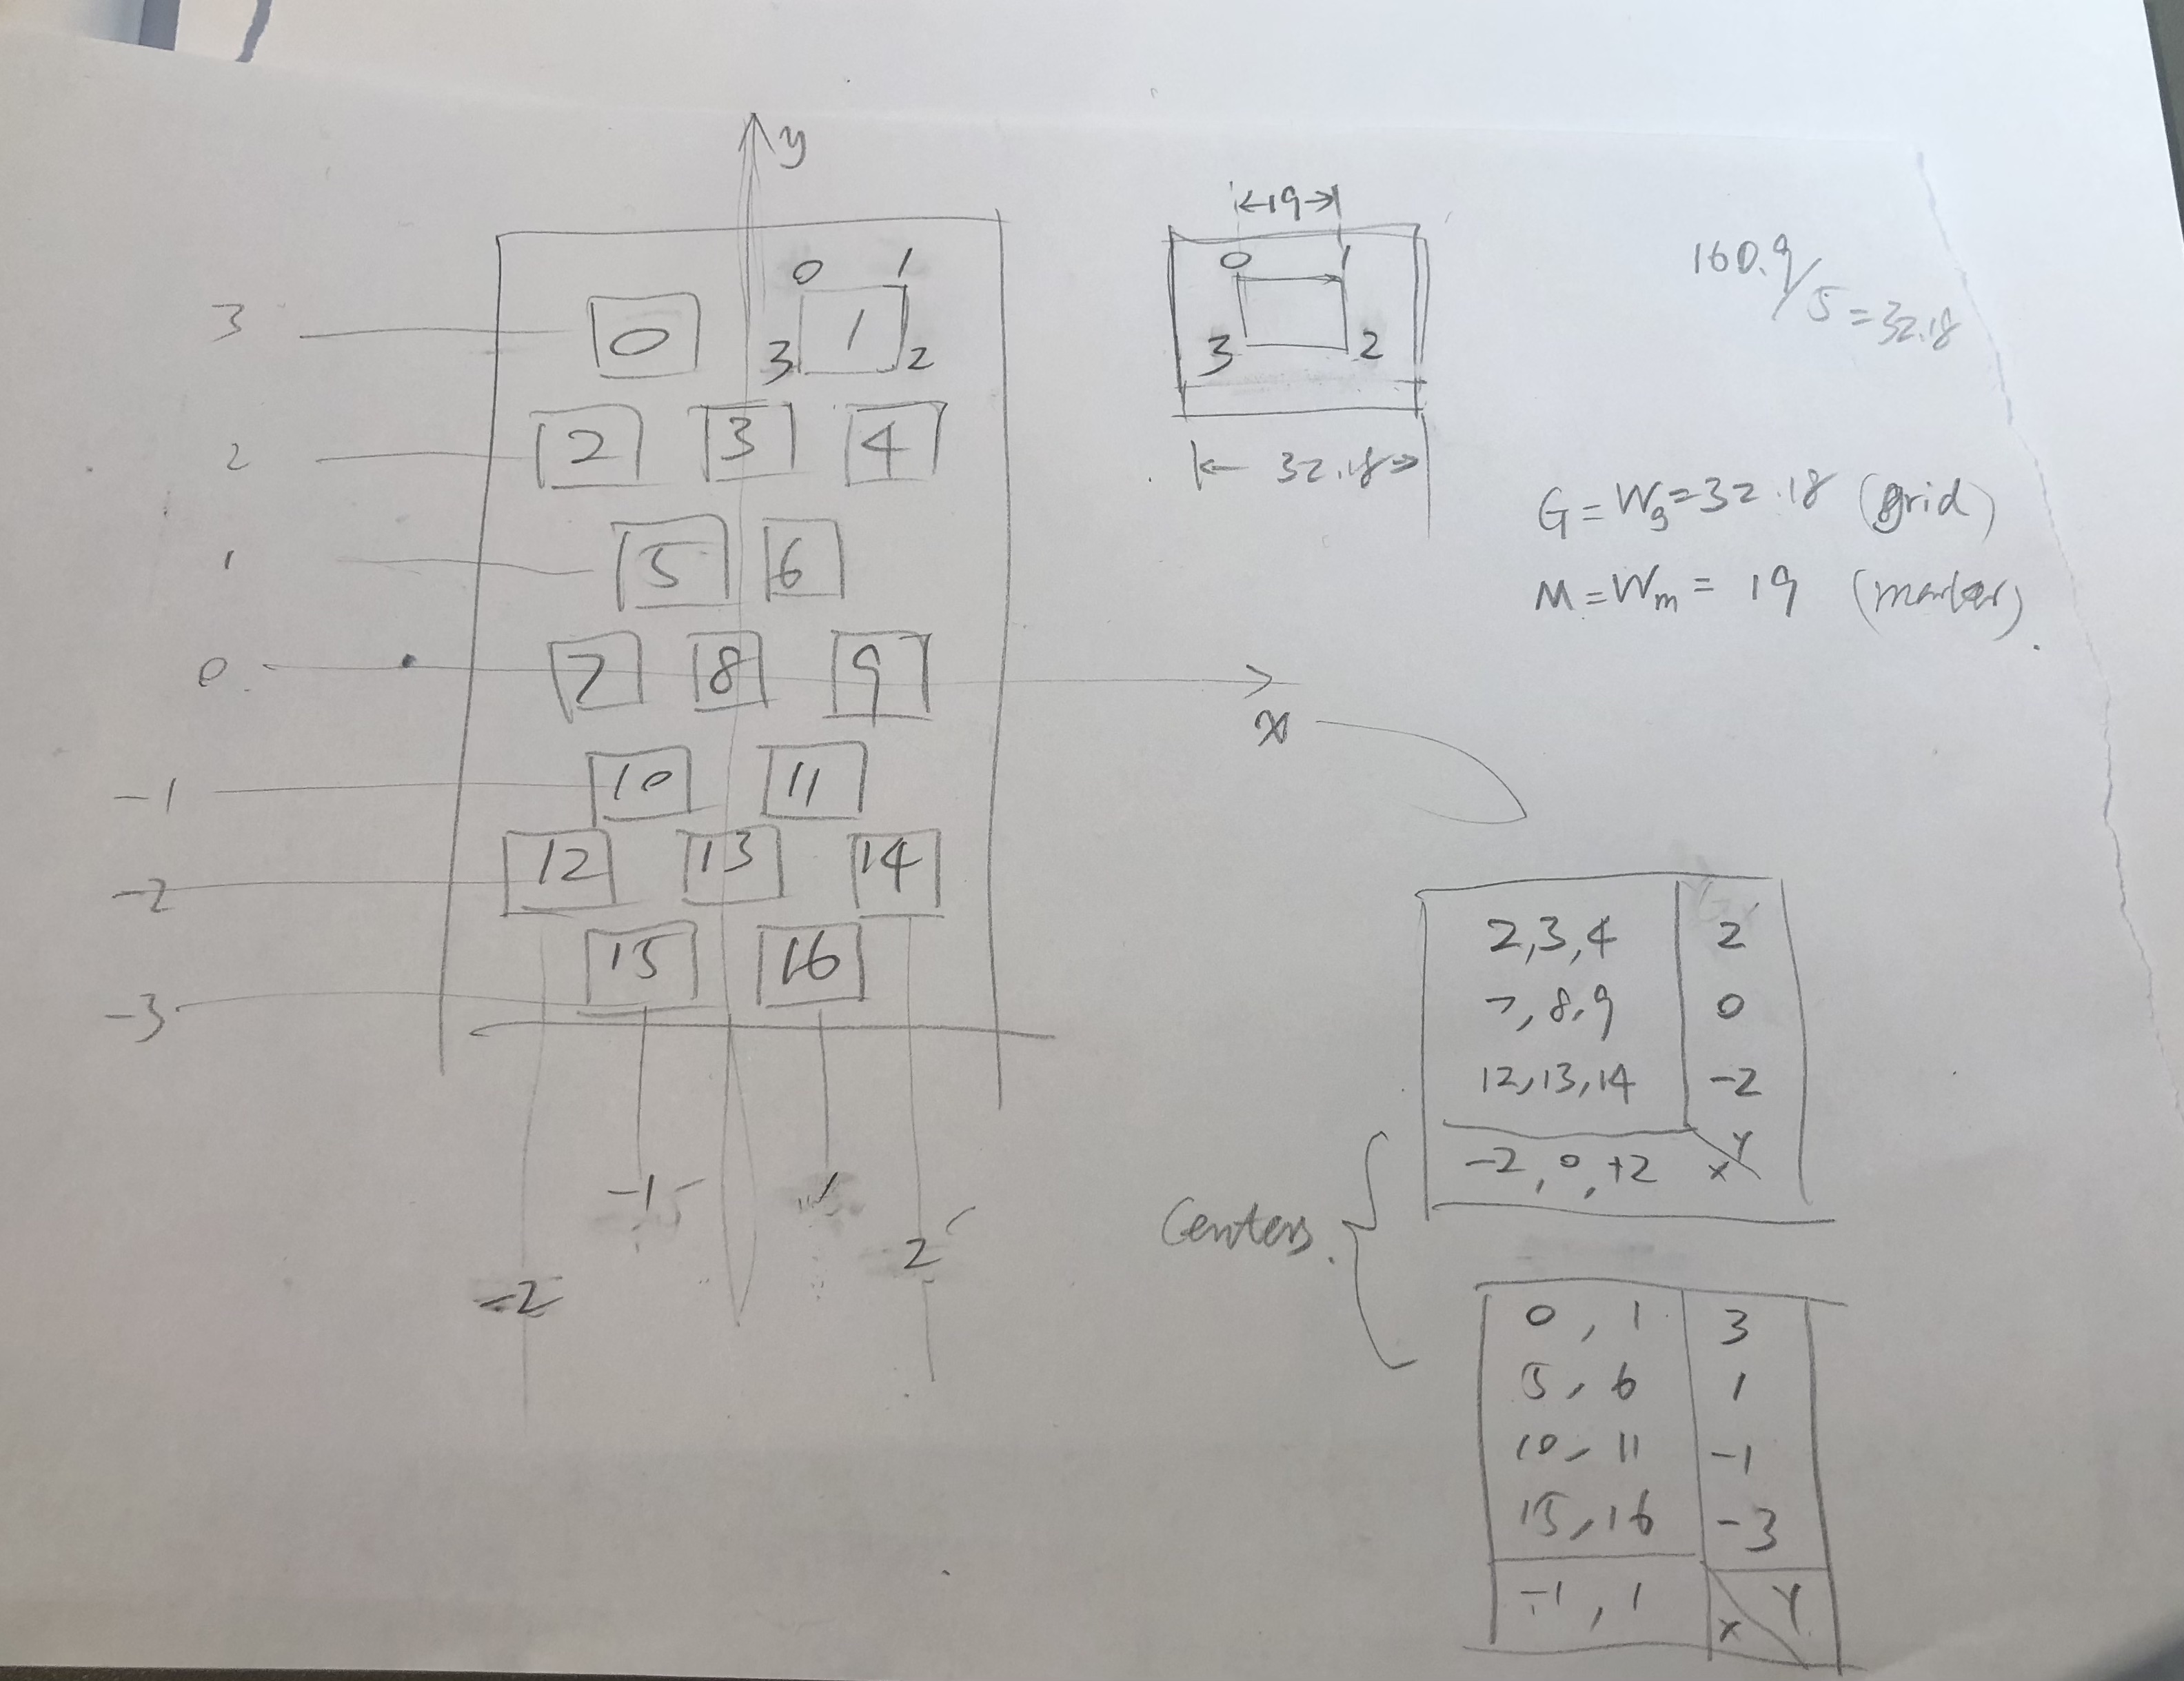 y
0 1
3 0 3 1 2
2 2 3 4
1 5 6
0 7 8 9
x
-1 10 11
-2 12 13 14
-3 15 16
-1 1
2
-2
19
0 1
3 2
32.18
160.9/5=32.18
G=Wg=32.18 (grid)
M=Wm=19 (marker)
2,3,4 2
7,8,9 0
12,13,14 -2
-2,0,+2 x Y
Centers.
0,1 3
5,6 1
10,11 -1
15,16 -3
-1,1 x Y